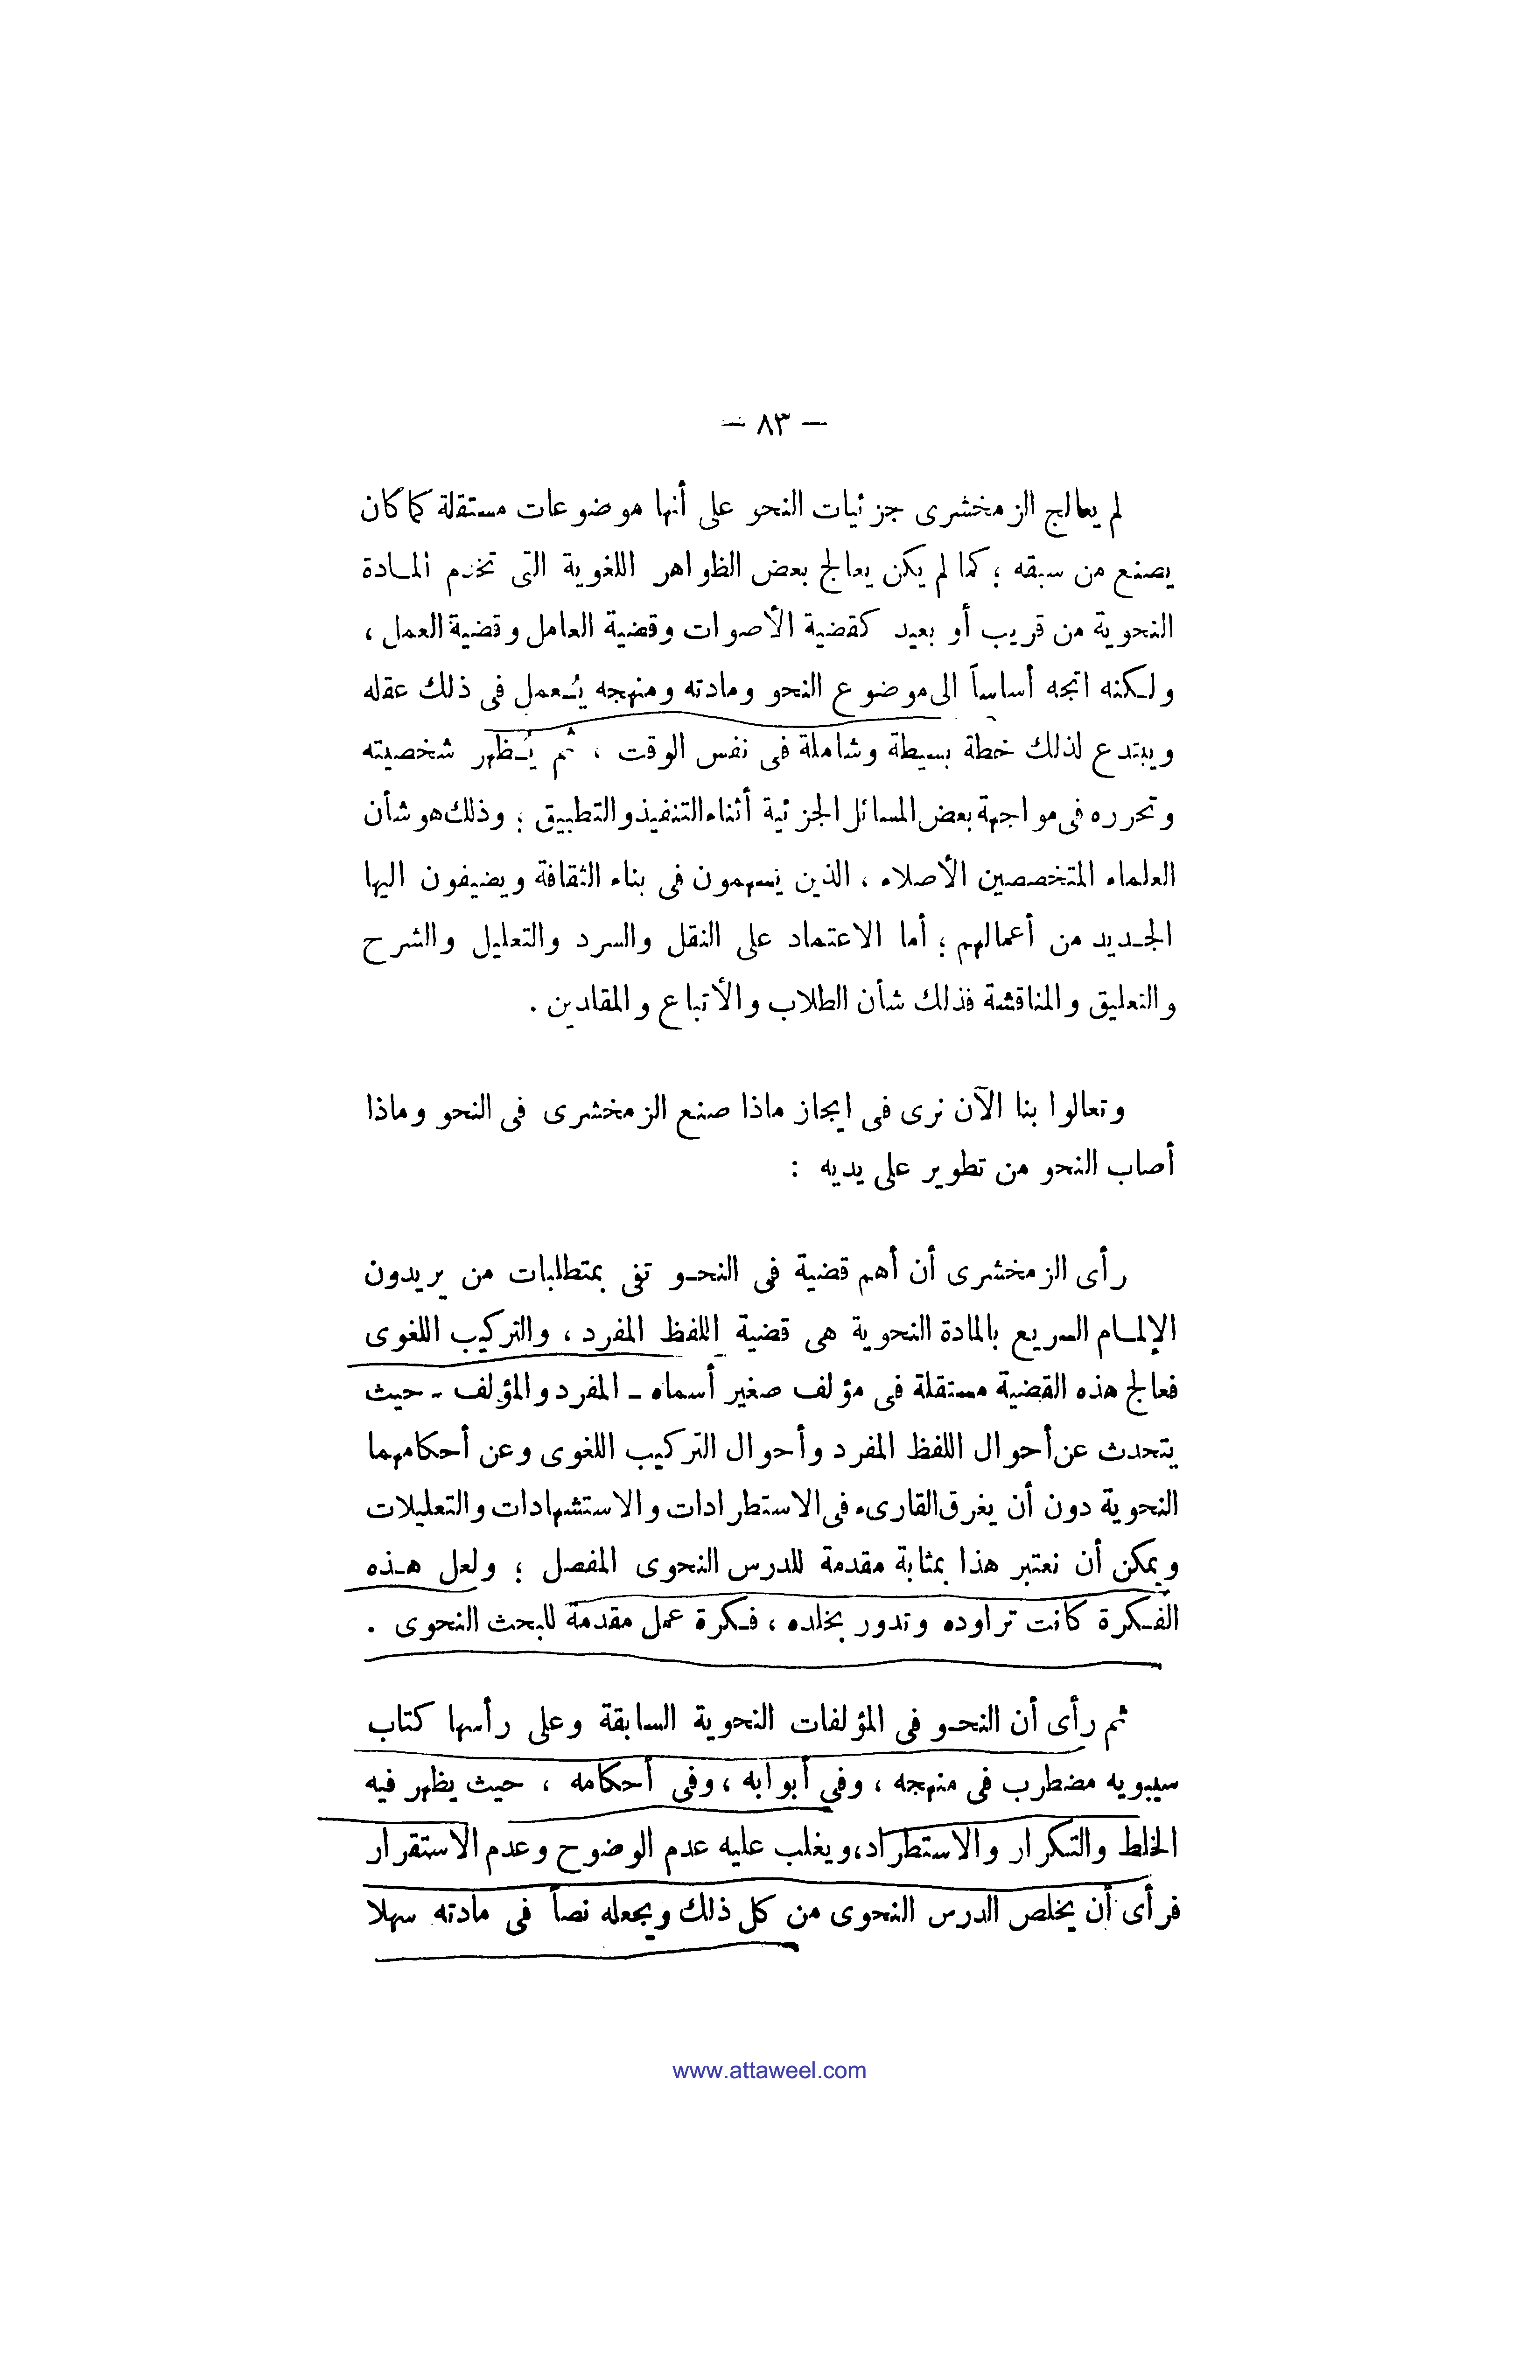 — ٨٣ —
لم يعالج الزمخشرى جزئيات النحو على أنها موضوعات مستقلة كما كان
يصنع من سبقه ؛ كما لم يكن يعالج بعض الظواهر اللغوية التى تخدم المادة
النحوية من قريب أو بعيد كقضية الأصوات وقضية العامل وقضية العمل ،
ولكنه اتجه أساساً الى موضوع النحو ومادته ومنهجه يُعمل فى ذلك عقله
ويبتدع لذلك خطة بسيطة وشاملة فى نفس الوقت ، ثم يُظهر شخصيته
وتحرره فى مواجهة بعض المسائل الجزئية أثناء التنفيذ والتطبيق ؛ وذلك هو شأن
العلماء المتخصصين الأصلاء ، الذين يسهمون فى بناء الثقافة ويضيفون اليها
الجديد من أعمالهم ؛ أما الاعتماد على النقل والسرد والتعليل والشرح
والتعليق والمناقشة فذلك شأن الطلاب والأتباع والمقلدين .
وتعالوا بنا الآن نرى فى ايجاز ماذا صنع الزمخشرى فى النحو وماذا
أصاب النحو من تطوير على يديه :
رأى الزمخشرى أن أهم قضية فى النحو تفى بمتطلبات من يريدون
الإلمام السريع بالمادة النحوية هى قضية اللفظ المفرد ، والتركيب اللغوى
فعالج هذه القضية مستقلة فى مؤلف صغير أسماه - المفرد والمؤلف - حيث
يتحدث عن أحوال اللفظ المفرد وأحوال التركيب اللغوى وعن أحكامهما
النحوية دون أن يغرق القارىء فى الاستطرادات والاستشهادات والتعليلات
ويمكن أن نعتبر هذا بمثابة مقدمة للدرس النحوى المفصل ؛ ولعل هذه
الفكرة كانت تراوده وتدور بخلده ، فكرة عمل مقدمة للبحث النحوى .
ثم رأى أن النحو فى المؤلفات النحوية السابقة وعلى رأسها كتاب
سيبويه مضطرب فى منهجه ، وفى أبوابه ، وفى أحكامه ، حيث يظهر فيه
الخلط والتكرار والاستطراد، ويغلب عليه عدم الوضوح وعدم الاستقرار
فرأى أن يخلص الدرس النحوى من كل ذلك ويجعله نصاً فى مادته سهلا
www.attaweel.com